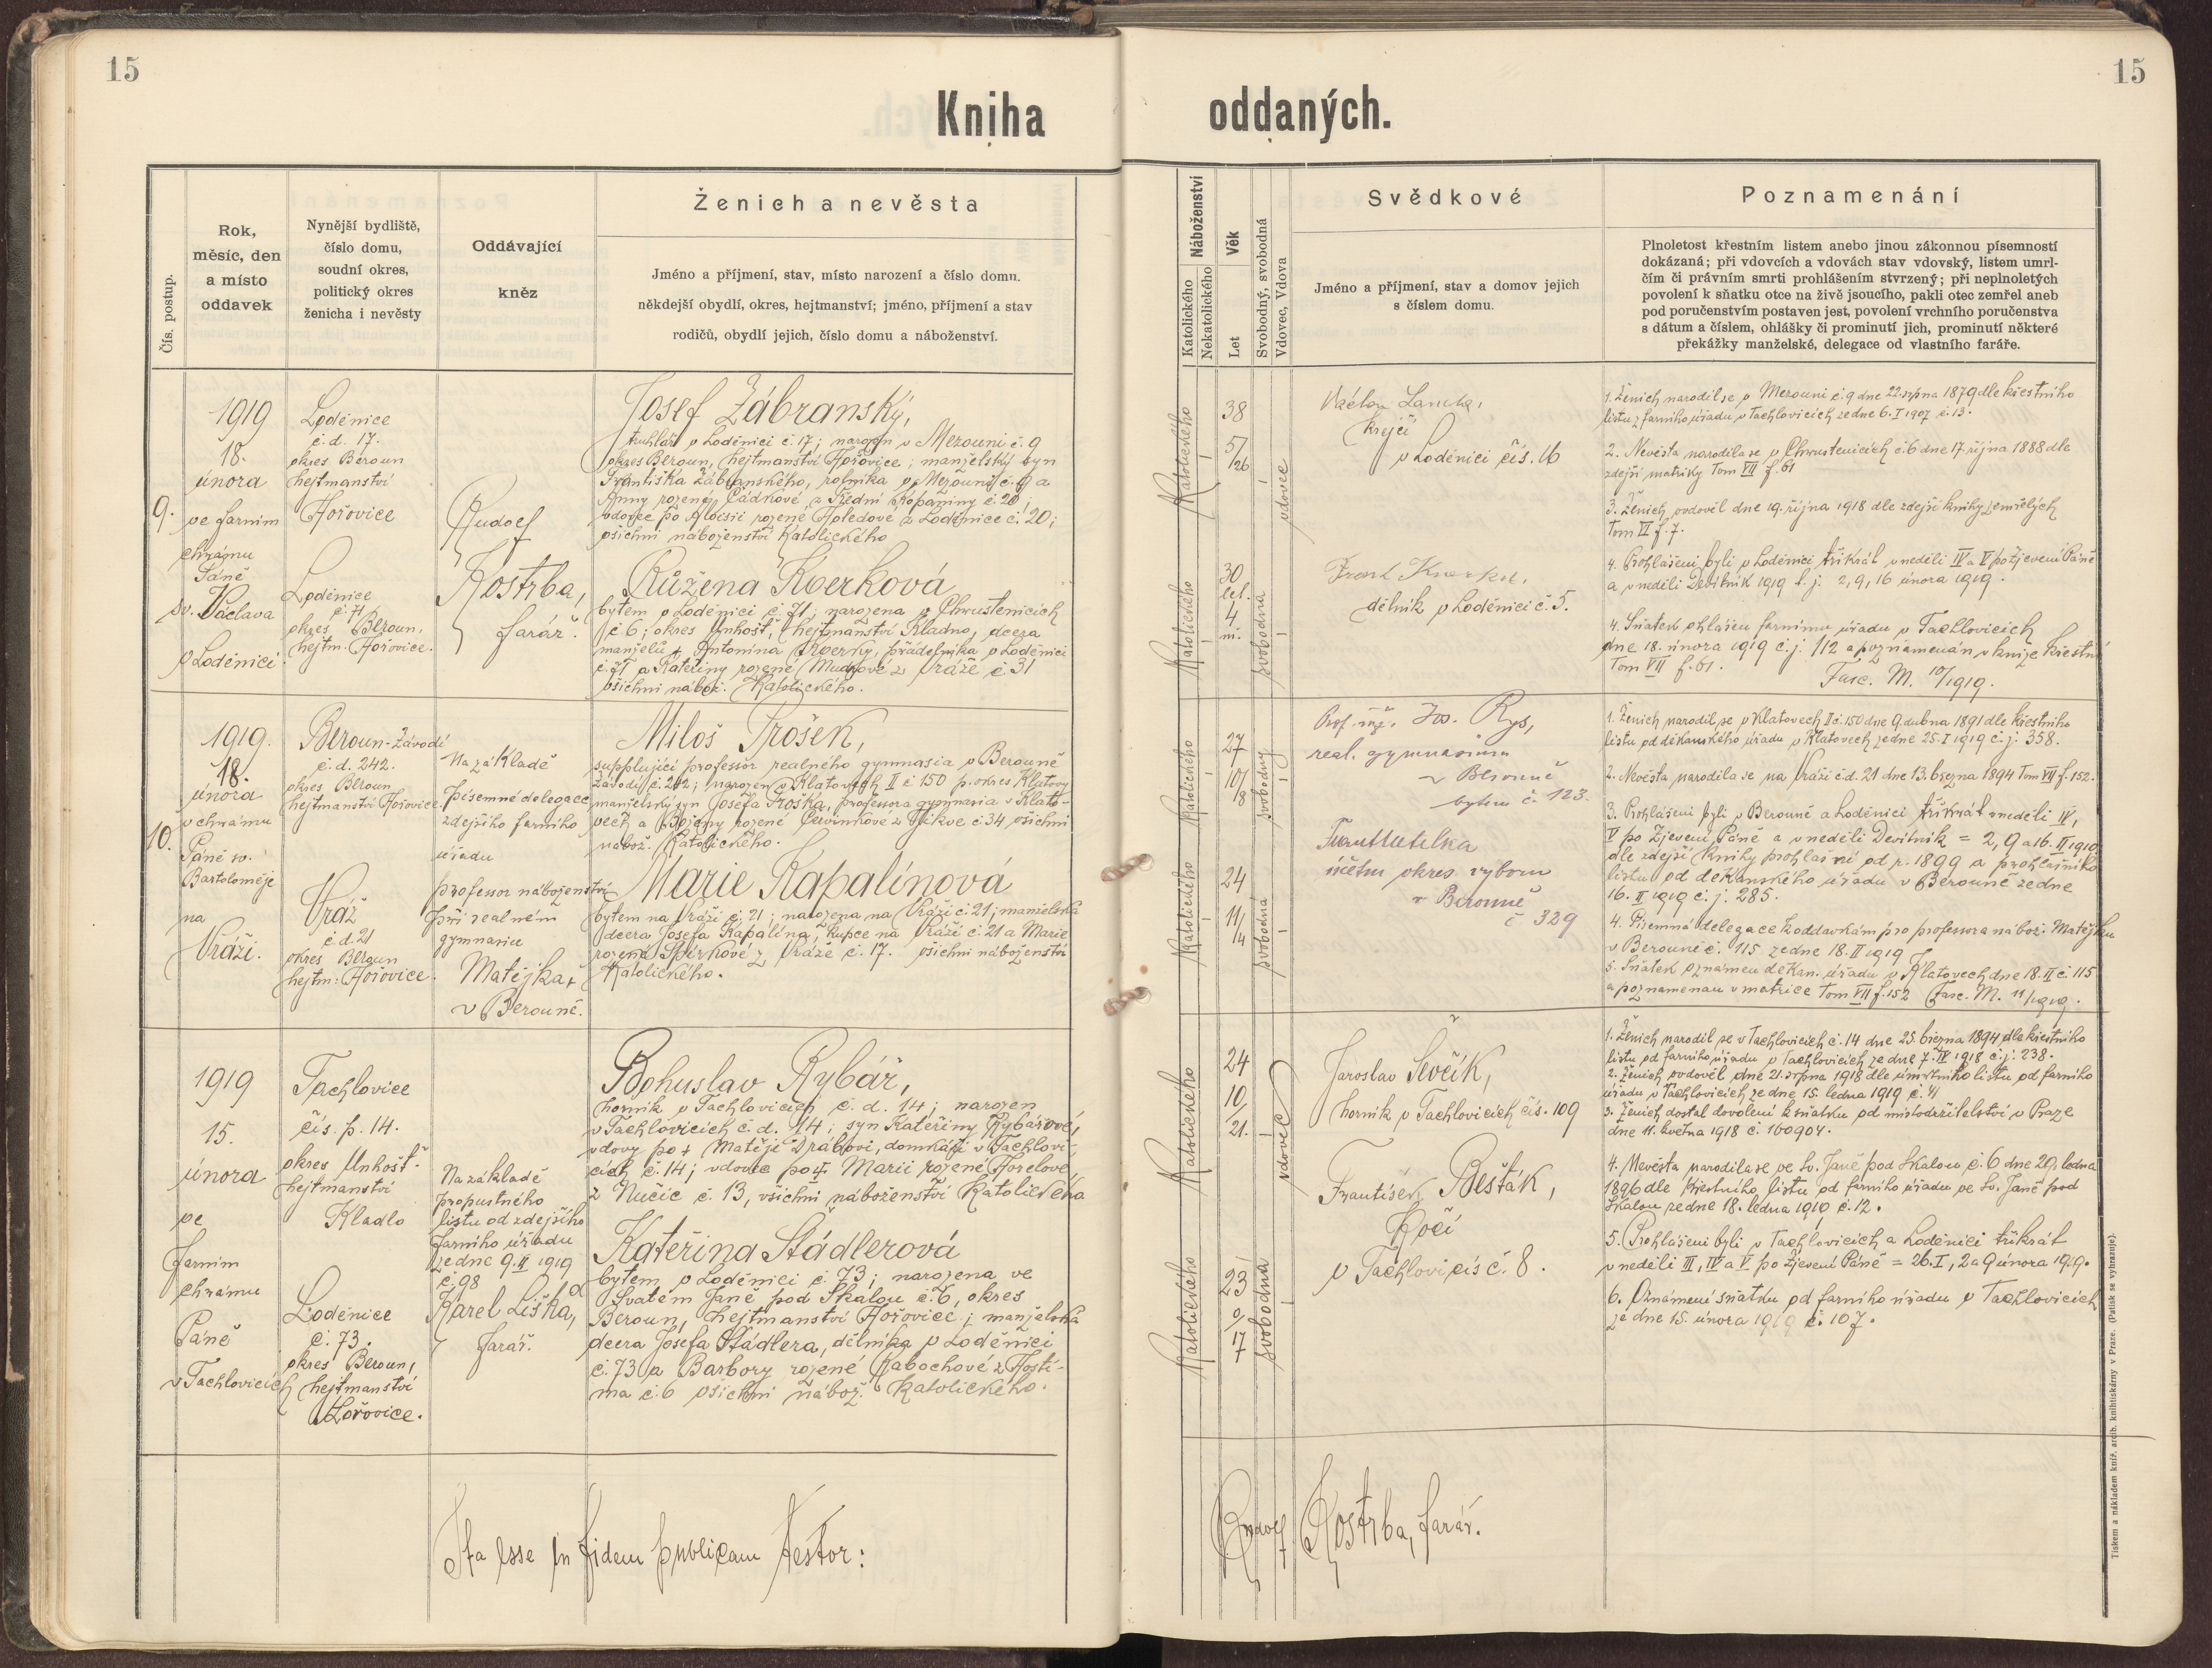 15
15
Kniha oddaných.
Čís. postup.
Rok,
měsíc, den
a místo
oddavek
Nynější bydliště,
číslo domu,
soudní okres,
politický okres
ženicha i nevěsty
Oddávající
kněz
Ženich a nevěsta
Jméno a příjmení, stav, místo narození a číslo domu.
někdejší obydlí, okres, hejtmanství; jméno, příjmení a stav
rodičů, obydlí jejich, číslo domu a náboženství.
Náboženství
Katolického
Nekatolického
Věk
Let
Svobodný, svobodná
Vdovec, Vdova
Svědkové
Jméno a příjmení, stav a domov jejich
s číslem domu.
Poznamenání
Plnoletost křestním listem anebo jinou zákonnou písemností
dokázaná; při vdovcích a vdovách stav vdovský, listem umrl-
čím či právním smrti prohlášením stvrzený; při neplnoletých
povolení k sňatku otce na živě jsoucího, pakli otec zemřel aneb
pod poručenstvím postaven jest, povolení vrchního poručenstva
s dátum a číslem, ohlášky či prominutí jich, prominutí některé
překážky manželské, delegace od vlastního faráře.
9.
1919
18.
února
ve farním
chrámu
Páně
sv. Václava
v Loděnici
Loděnice
č.d. 17.
okres Beroun
hejtmanství
Hořovice
Loděnice
č. 71
okres Beroun,
hejtm. Hořovice.
Rudolf
Kostrba,
farář.
Josef Zábranský,
truhlář v Loděnici č. 17; narozen v Mezouni č. 9
okres Beroun, hejtmanství Hořovice; manželský syn
Františka Zábranského, rolníka v Mezouni č. 9 a
Anny rozené Čádkové z Přední Kopaniny č. 20;
vdovec po Aloisii rozené Holedové z Loděnice č. 20;
všichni náboženství katolického
Růžena Kverková
bytem v Loděnici č. 71; narozena v Chrustenicích
č 6; okres Unhošť, hejtmanství Kladno, dcera
manželů Antonína Kverky, přadelníka v Loděnici
č. 71 a Kateřiny rozené Mudrové z Vráže č 31
všichni nábož. Katolického.
Katolického
38
5/26
vdovec
Katolického
30
let.
4
m.
svobodná
Krejčí
v Loděnici čís. 16
dělník v Loděnici č. 5.
1. Ženich narodil se v Mezouni č. 9 dne 22. srpna 1879 dle křestního
listu z farního úřadu v Tachlovicích ze dne 6. I 1907 č. 13.
2. Nevěsta narodila se v Chrustenicích č. 6 dne 17 října 1888 dle
zdejší matriky Tom VII f. 61
3. Ženich ovdověl dne 19. října 1918 dle zdejší knihy zemřelých
Tom VI f. 7.
4. Prohlášeni byli v Loděnici třikrát v neděli IV a V po Zjevení Páně
a v neděli Devítník 1919 t. j. 2, 9, 16 února 1919.
4. Sňatek ohlášen farnímu úřadu v Tachlovicích
dne 18. února 1919 č. j. 112 a poznamenán v knize křestní
Tom VII f. 61.
Fasc. M. 10/1919.
10.
1919.
18.
února
v chrámu
Páně sv.
Bartoloměje
na
Vráži.
Beroun-Závodí
č.d. 242.
okres Beroun
hejtmanství Hořovice.
Vráž
č.d. 21
okres Beroun
hejtm. Hořovice.
Na základě
písemné delegace
zdejšího farního
úřadu
professor náboženství
při realném
gymnasiu
Matějka
v Berouně.
Miloš Frošek,
supplující professor realného gymnasia v Berouně
Závodí č. 242; narozen v Klatovech II č 150 p. okres Klatovy
manželský syn Josefa Froška, professora gymnasia v Klato-
vech a Boženy rozené Červinkové z Vlkve č 34 všichni
nábož. Katolického.
Marie Kapalínová
bytem na Vráži č. 21; narozena na Vráži č. 21; manželská
dcera Josefa Kapalína, kupce na Vráži č. 21 a Marie
rozené Spirkové z Vráže č. 17. všichni náboženství
Katolického.
Katolického
27
10/8
svobodný
Katolického
24
11/4
svobodná
Prof. Jos. Rys,
real. gymnasium
v Berouně
bytem č. 123.
účetní okres. výboru
v Berouně
č 329
1. Ženich narodil se v Klatovech II č. 150 dne 9. dubna 1891 dle křestního
listu od děkanského úřadu v Klatovech ze dne 25. I 1919 č. j. 358.
2. Nevěsta narodila se na Vráži č.d. 21 dne 13. března 1894 Tom VII f. 152.
3. Prohlášeni byli v Berouně a Loděnici třikrát v neděli IV,
V po Zjevení Páně a v neděli Devítník = 2, 9 a 16. II 1919
dle zdejší knihy prohlášní od r. 1899 a prohlášního
listu od děkanského úřadu v Berouně ze dne
16. II 1919 č. j. 285.
4. Písemná delegace k oddavkám pro professora nábož. Matějku
v Berouně č. 115 ze dne 18. II 1919
5. Sňatek oznámen děkan. úřadu v Klatovech dne 18. II č. 115
a poznamenán v matrice Tom VII f. 152 Fasc. M. 11/1919.
1919
15.
února
ve
farním
chrámu
Páně
v Tachlovicích
Tachlovice
čís. p. 14.
okres Unhošť
hejtmanství
Kladlo
Loděnice
č. 73.
okres Beroun,
hejtmanství
Hořovice.
Na základě
propustného
listu od zdejšího
farního úřadu
ze dne 9. II 1919
č. 98
Karel Liška,
farář.
Bohuslav Rybář,
horník v Tachlovicích č. d. 14; narozen
v Tachlovicích č. d. 14; syn Kateřiny Rybářové,
vdovy po + Matěji Drábovi, domkáři v Tachlovi-
cích č. 14; vdovec po Marii rozené Horelové
z Nučic č. 13, všichni náboženství Katolického
Kateřina Štádlerová
bytem v Loděnici č. 73; narozena ve
Svatém Janě pod Skalou č. 6, okres
Beroun, hejtmanství Hořovice; manželská
dcera Josefa Štádlera, dělníka v Loděnici
č. 73 a Barbory rozené Rabochové z Hostí-
ma č. 6 všichni nábož. katolického.
Katolického
24
10/21.
vdovec
Katolického
23
9/17
svobodná
Jaroslav Ševčík,
horník v Tachlovicích čís. 109
František Bešťák,
Kočí
v Tachlovicís č. 8.
1. Ženich narodil se v Tachlovicích č. 14 dne 25. března 1894 dle křestního
listu od farního úřadu v Tachlovicích ze dne 7. IV 1918 č. j. 238.
2. Ženich ovdověl dne 21. srpna 1918 dle úmrtního listu od farního
úřadu v Tachlovicích ze dne 15. ledna 1919 č. 41
3. Ženich dostal dovolení k sňatku od místodržitelství v Praze
dne 11. května 1918 č. 160904.
4. Nevěsta narodila se ve Sv. Janě pod Skalou č. 6 dne 29. ledna
1896 dle křestního listu od farního úřadu ve Sv. Janě pod
Skalou ze dne 18. ledna 1919 č. 12.
5. Prohlášeni byli v Tachlovicích a Loděnici třikrát
v neděli III, IV a V po Zjevení Páně = 26. I, 2 a 9 února 1919.
6. Oznámení sňatku od farního úřadu v Tachlovicích
ze dne 15. února 1919 č. 107.
Ita esse in fidem publicam testor:
Rudolf Kostrba, farář.
Tiskem a nákladem kníž. arcib. knihtiskárny v Praze. (Patisk se vyhrazuje).